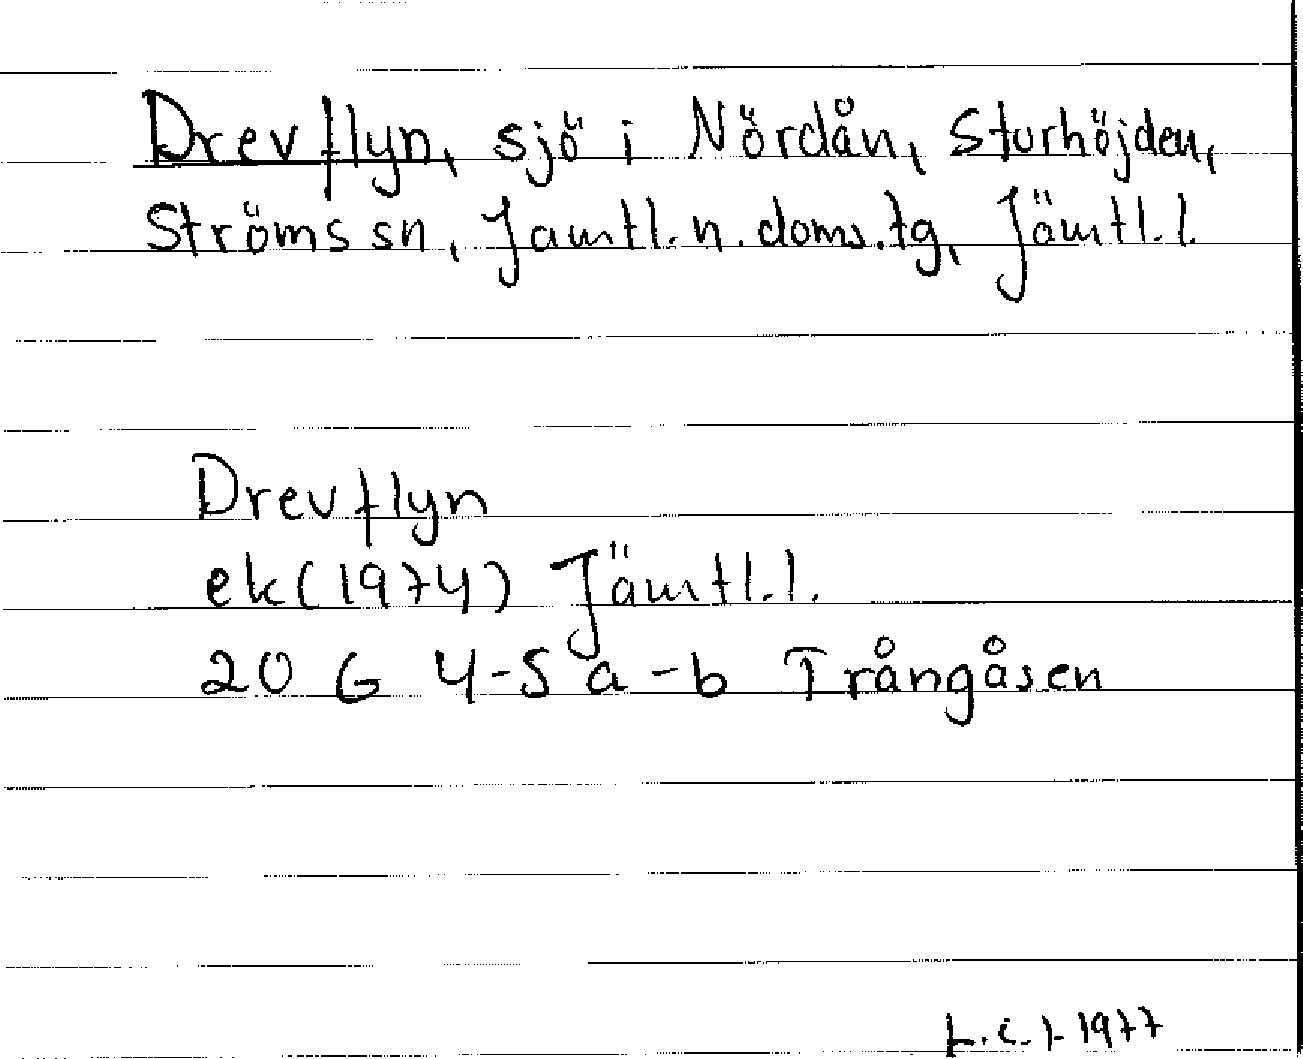 Drevflyn, sjö i Nördån, Sturhöjden,
Ströms sn, Jamtl. n. doms. tg, Jämtl. l.
Drevflyn
ek (1974) Jämtl. l.
20 G 4-5 a-b Trångåsen
1977